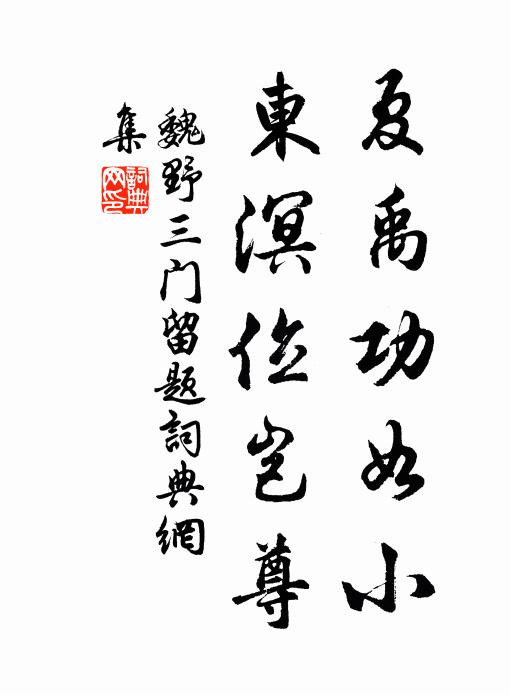 夏禹功如小
東溟位岂尊
魏野三门留题詞典網
集
詞典网印